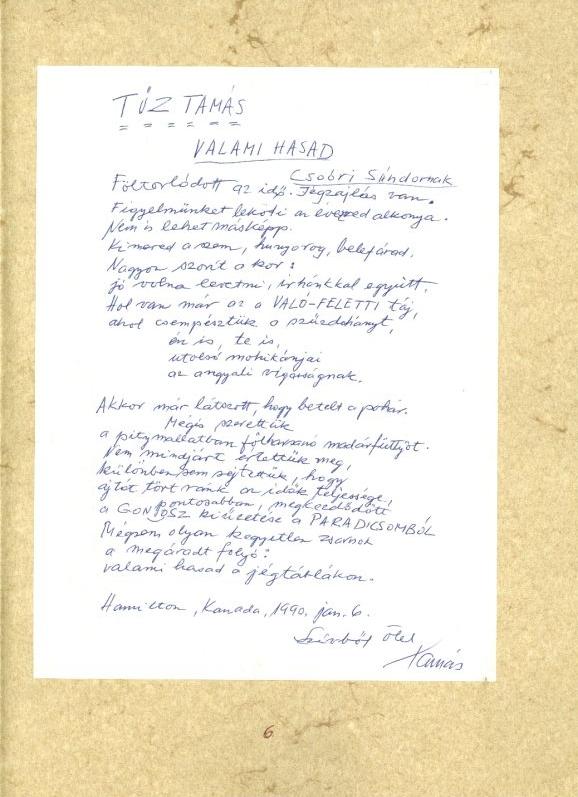 TŰZ TAMÁS
VALAMI HASAD
Csoóri Sándornak
Föltorlódott az idő. Jégzajlás van.
Figyelmünket leköti az évezred alkonya.
Nem is lehet másképp.
Kimered a szem, hunyorog, belefárad.
Nagyon szorít a kor:
jó volna levetni, irhánkkal együtt.
Hol van már az a VALÓ-FELETTI táj,
ahol csempésztük a szűzdohányt,
én is, te is,
utolsó mohikánjai
az angyali vígasságnak.
Akkor már látszott, hogy betelt a pohár.
Mégis szerettük
a pitymallatban fölharsanó madárfüttyöt.
Nem mindjárt értettük meg,
különben sem sejtettük, hogy
ajtót tört ránk az idők teljessége,
pontosabban, megkezdődött
a GONOSZ kiűzetése a PARADICSOMBÓL
Mégsem olyan kegyetlen zsarnok
a megáradt folyó:
valami hasad a jégtáblákon.
Hamilton, Kanada, 1990. jan. 6.
Szívből ölel
Tamás
6